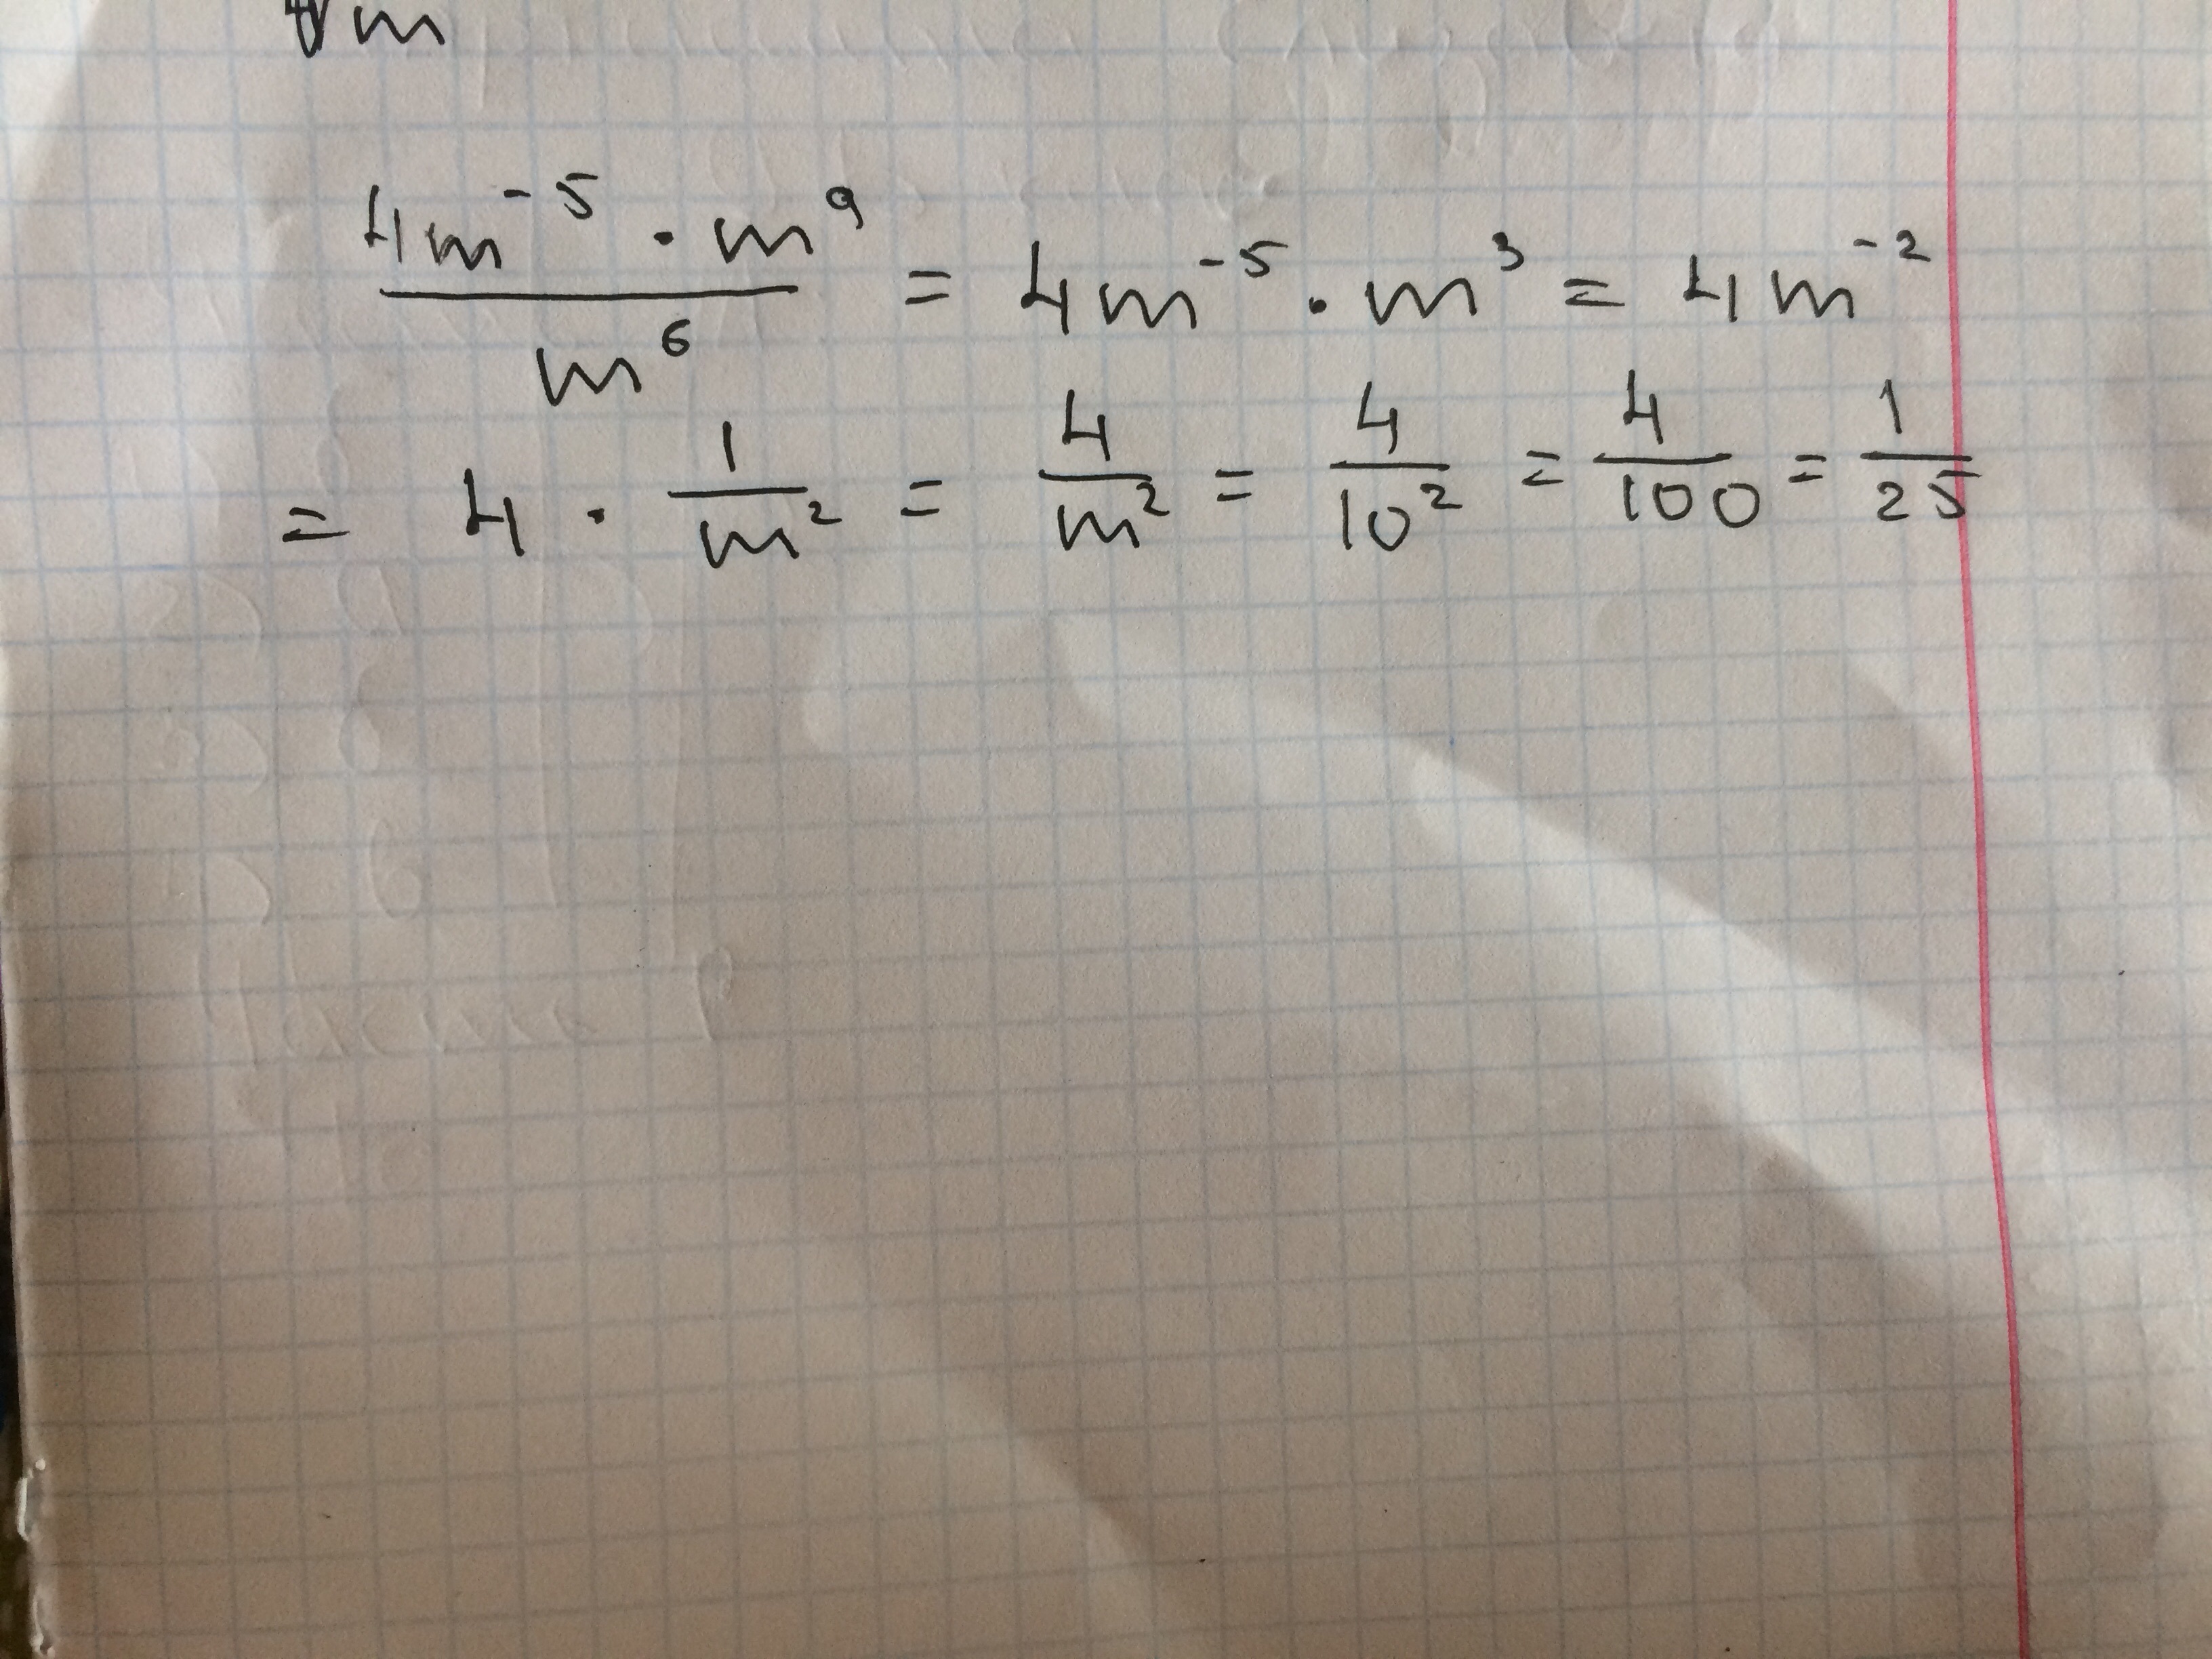 m
4m⁻⁵ · m⁹ / m⁶ = 4m⁻⁵ · m³ = 4m⁻²
= 4 · 1/m² = 4/m² = 4/10² = 4/100 = 1/25